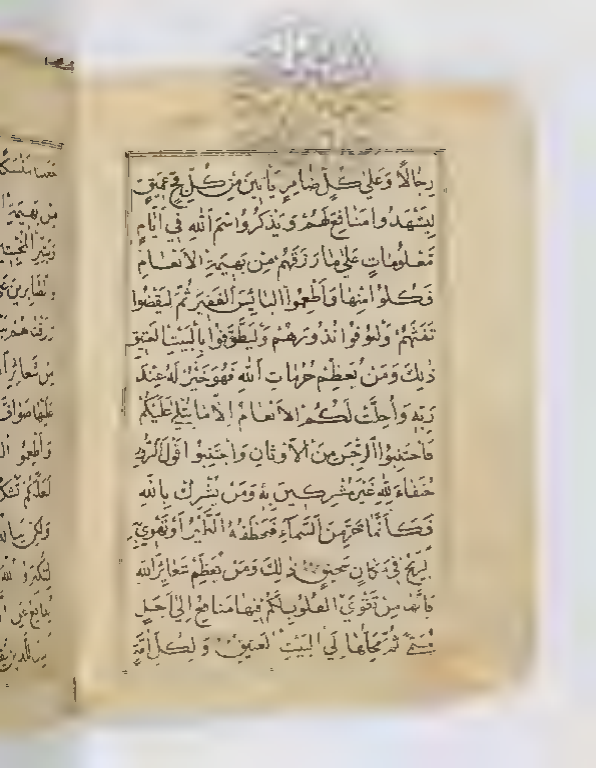 رِجَالًا وَعَلَىٰ كُلِّ ضَامِرٍ يَأْتِينَ مِنْ كُلِّ فَجٍّ عَمِيقٍ
لِيَشْهَدُوا مَنَافِعَ لَهُمْ وَيَذْكُرُوا اسْمَ اللهِ فِي أَيَّامٍ
مَعْلُومَاتٍ عَلَىٰ مَا رَزَقَهُمْ مِنْ بَهِيمَةِ الْأَنْعَامِ
فَكُلُوا مِنْهَا وَأَطْعِمُوا الْبَائِسَ الْفَقِيرَ ثُمَّ لْيَقْضُوا
تَفَثَهُمْ وَلْيُوفُوا نُذُورَهُمْ وَلْيَطَّوَّفُوا بِالْبَيْتِ الْعَتِيقِ
ذَٰلِكَ وَمَنْ يُعَظِّمْ حُرُمَاتِ اللهِ فَهُوَ خَيْرٌ لَهُ عِنْدَ
رَبِّهِ وَأُحِلَّتْ لَكُمُ الْأَنْعَامُ إِلَّا مَا يُتْلَىٰ عَلَيْكُمْ
فَاجْتَنِبُوا الرِّجْسَ مِنَ الْأَوْثَانِ وَاجْتَنِبُوا قَوْلَ الزُّورِ
حُنَفَاءَ لِلهِ غَيْرَ مُشْرِكِينَ بِهِ وَمَنْ يُشْرِكْ بِاللهِ
فَكَأَنَّمَا خَرَّ مِنَ السَّمَاءِ فَتَخْطَفُهُ الطَّيْرُ أَوْ تَهْوِي بِهِ
الرِّيحُ فِي مَكَانٍ سَحِيقٍ ذَٰلِكَ وَمَنْ يُعَظِّمْ شَعَائِرَ اللهِ
فَإِنَّهَا مِنْ تَقْوَى الْقُلُوبِ لَكُمْ فِيهَا مَنَافِعُ إِلَىٰ أَجَلٍ
مُسَمًّى ثُمَّ مَحِلُّهَا إِلَى الْبَيْتِ الْعَتِيقِ وَلِكُلِّ أُمَّةٍ